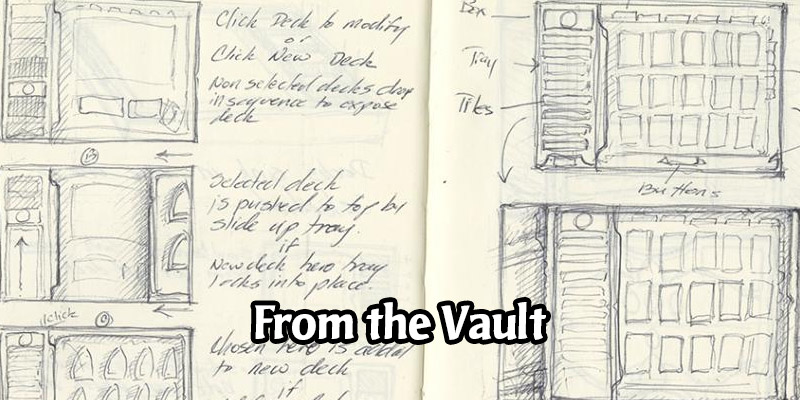 Click Deck to modify
or
Click New Deck
Non selected decks drop
in sequence to expose
deck
Selected deck
is pushed to top by
slide up tray.
if
New deck hero tray
locks into place.
click
Chosen hero is added
to new deck
if
Box
Tray
Tiles
Buttons
From the Vault